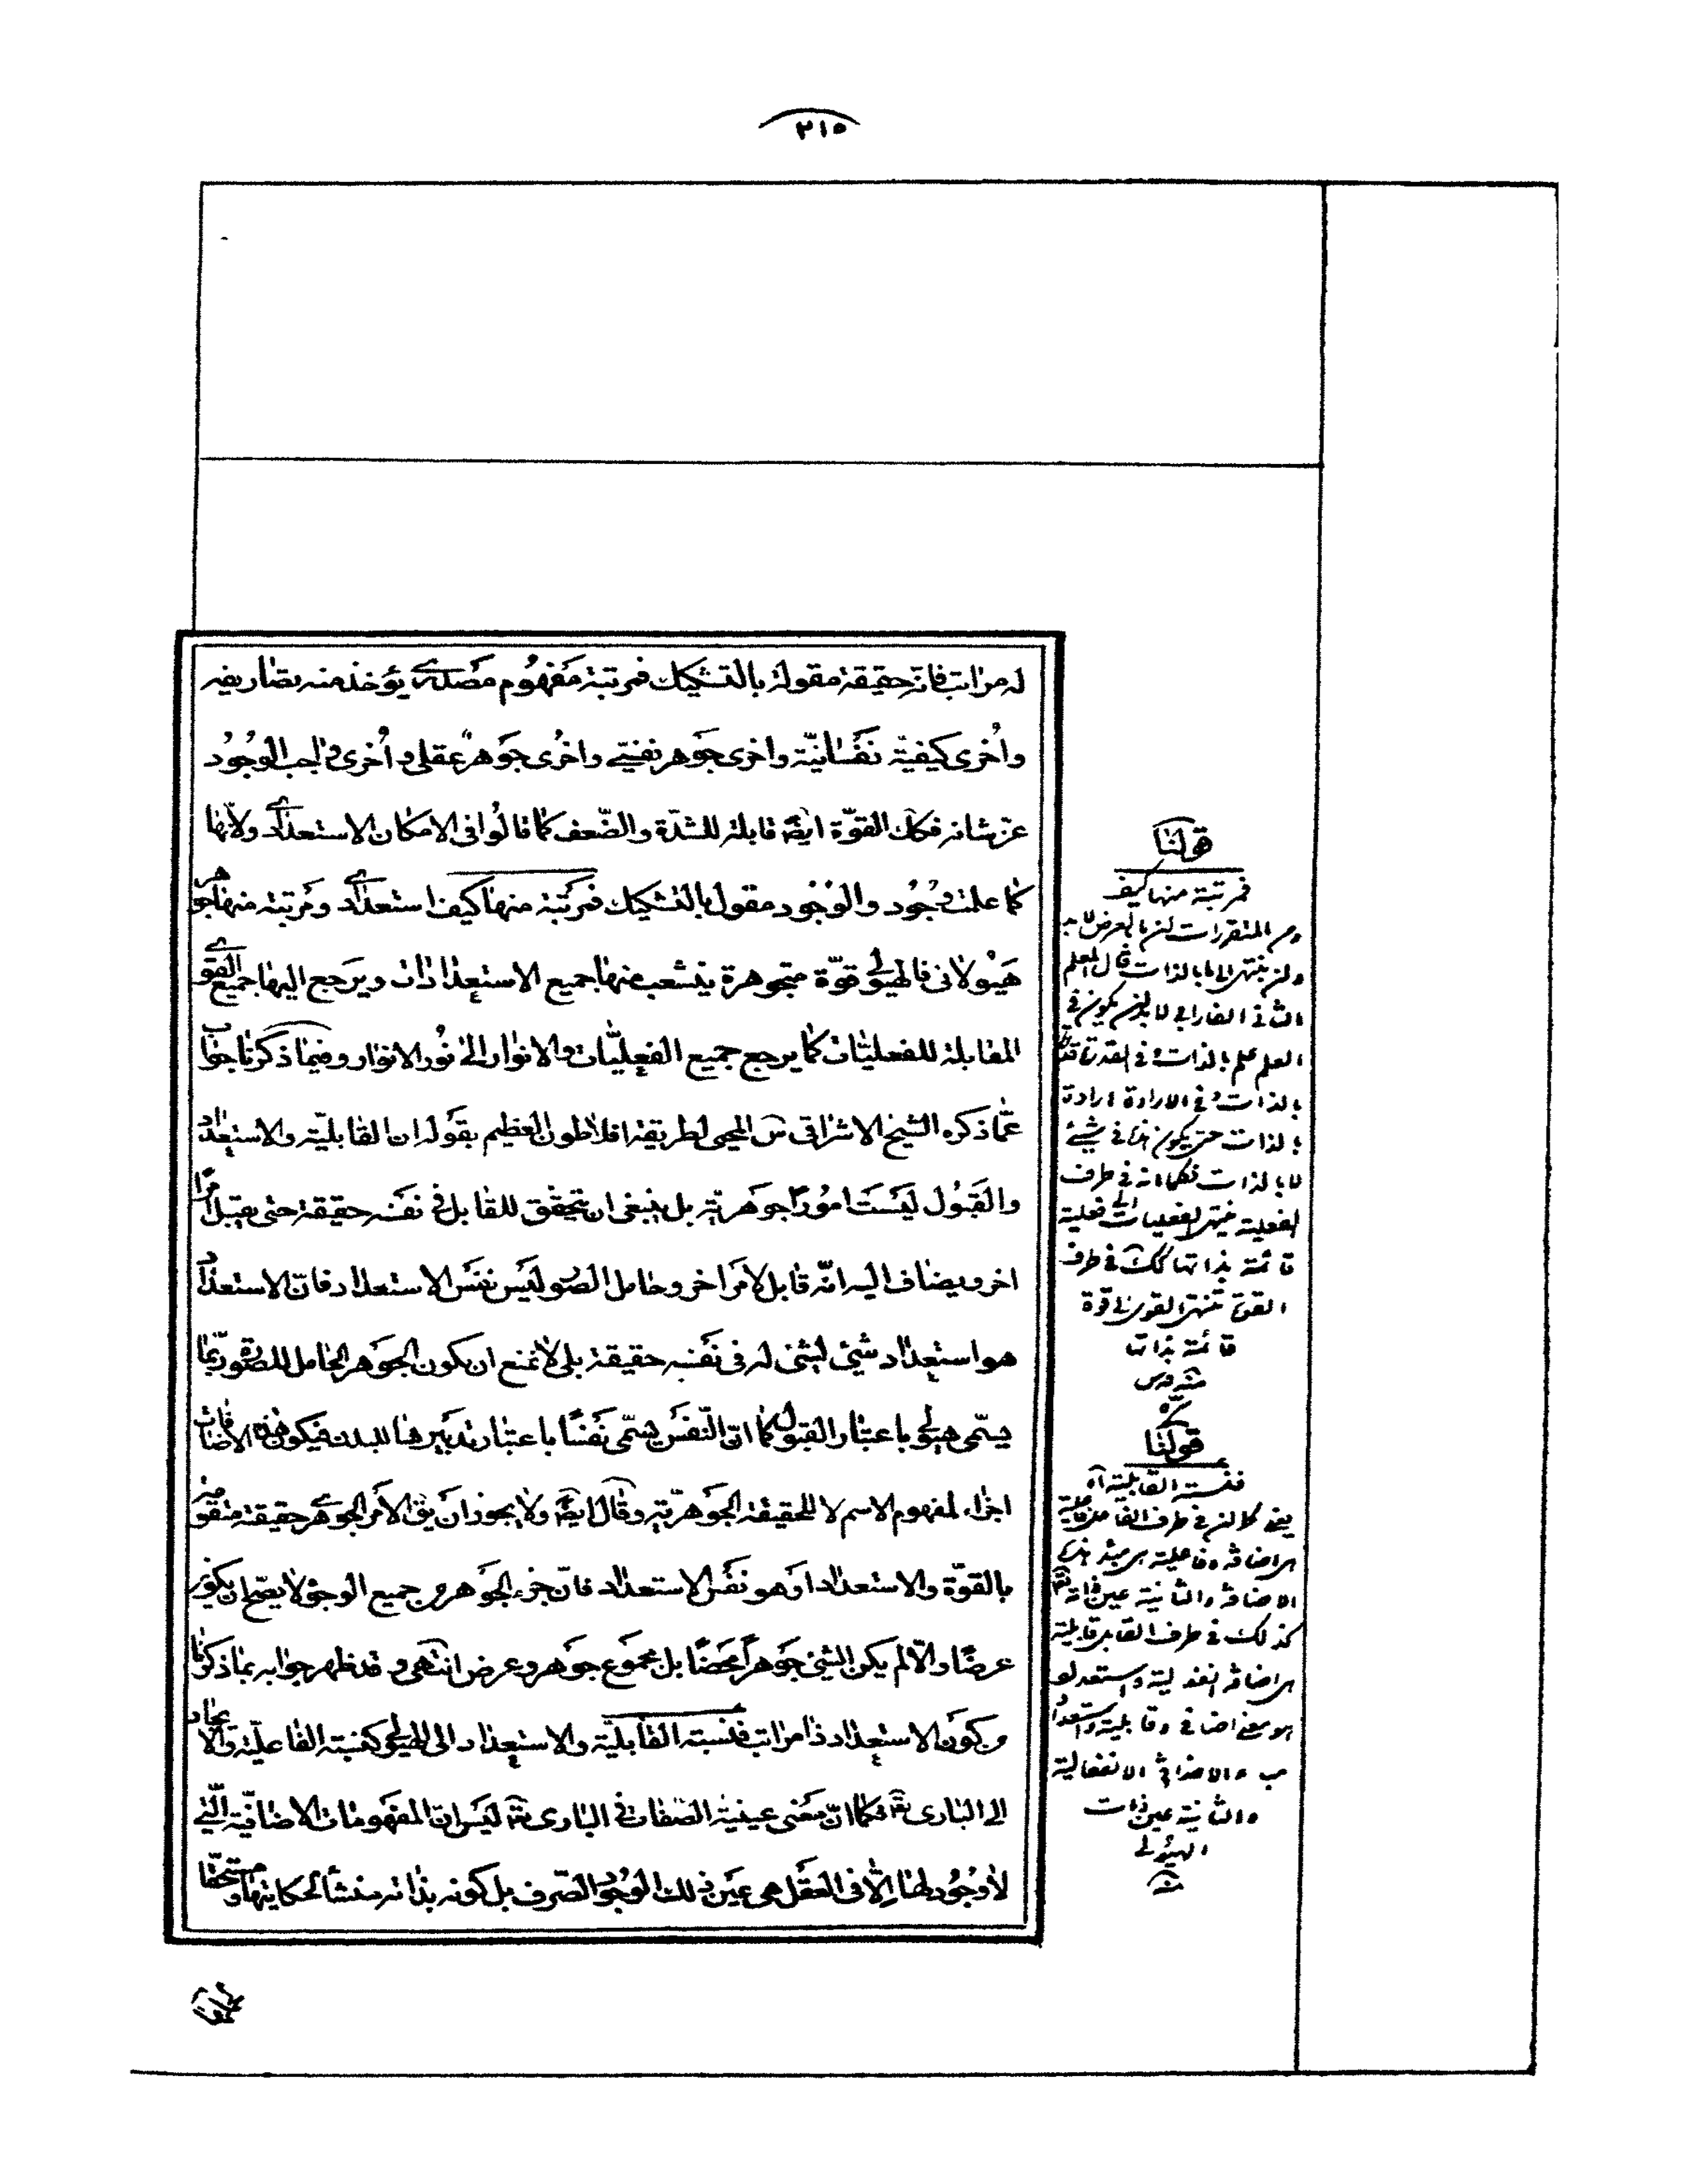 ٢١٥
له مراتب فانّه حقيقة مقولة بالتشكيك فمرتبة مفهوم مصدرى يؤخذ منه تصاريفه
واُخرى كيفيّة نفسانيّة واخرى جوهر نفسى واخرى جوهر عقلى واُخرى واجب الوجُود
عزّ شانه فكك القوّة ايضًا قابلة للشدّة والضّعف كما قالوا فى الامكان الاستعدادى ولانّها
كما علمت وجُود والوُجود مقول بالتشكيك فمرتبة منها كيف استعدادى ومرتبة منها جوهر
هيُولانى فالهيولى قوّة متجوهرة ينشعب منها جميع الاستعدادات ويرجع اليها جميع القوى
المقابلة للفعليّات كما يرجع جميع الفعليّات والانوار الى نُور الانوار وفيما ذكرنا جواب
عمّا ذكره الشيخ الاشراقى س المحيى لطريقة افلاطون العظيم بقوله ان القابليّة والاستعداد
والقبُول ليست امُورًا جوهريّة بل ينبغى ان يتحقق للقابل فى نفسه حقيقة حتى يقبل امرًا
اخر ويضاف اليه انّه قابل لامر اخر وحامل الصُور ليس نفس الاستعداد فانّ الاستعداد
هو استعداد شىء لشىء له فى نفسه حقيقة بلى لا نمنع ان يكون الجوهر الحامل للصورة ربّما
يسمّى هيولى باعتبار القبول كما انّ النّفس يسمّى نفسًا باعتبار تدبيرها للبدن فيكون هذه الاضافات
اجزاء لمفهوم الاسم لا للحقيقة الجوهريّة وقال ايضًا ولا يجوز ان يق الامر الجوهرى حقيقة متقومة
بالقوّة والاستعداد او هو نفس الاستعداد فانّ جزء الجوهر من جميع الوجوه لا يصحّ ان يكون
عرضًا والّا لم يكن الشىء جوهرًا محضًا بل مجموع جوهر وعرض انتهى وقد ظهر جوابه بما ذكرنا
من كون الاستعداد ذا مراتب فنسبة القابليّة والاستعداد الى الهيولى كنسبة الفاعليّة والايجاد
الى البارى تعَ فكما انّ معنى عينية الصّفات فى البارى تعَ ليس انّ المفهومات الاضافيّة الّتى
لا وجُود لها الّا فى العقل هى عين ذلك الوجُود الصّرف بل كونه بذاته منشأ لحكايتها ومستحقّا
قولنا
فمرتبة منها كيف
ومن المتقررات ان ما بالعرض لا بد
وان ينتهى الى ما بالذات قال المعلم
الثانى الفارابى لا بد ان يكون فى
العلم علم بالذات وفى القدرة قدرة
بالذات وفى الارادة ارادة
بالذات حتى يكون هذه فى شىء
لا بالذات فكما انه فى طرف
الفعلية ينتهى الفعليات الى فعلية
قائمة بذاتها كك فى طرف
القوة تنتهى القوى الى قوة
قائمة بذاتها
منه قدس
سره
قولنا
فنسبة القابلية آه
يعنى كما ان فى طرف الفاعل فاعلية
هى اضافة وفاعلية هى مبدء هذه
الاضافة والثانية عين ذاته تعَ
كذلك فى طرف القابل قابلية
هى اضافة انفعالية واستعداد
هو معنى اضافى وقابلية واستعداد
هى مبدء الاضافة الانفعالية
والثانية عين ذات
الهيولى
منه